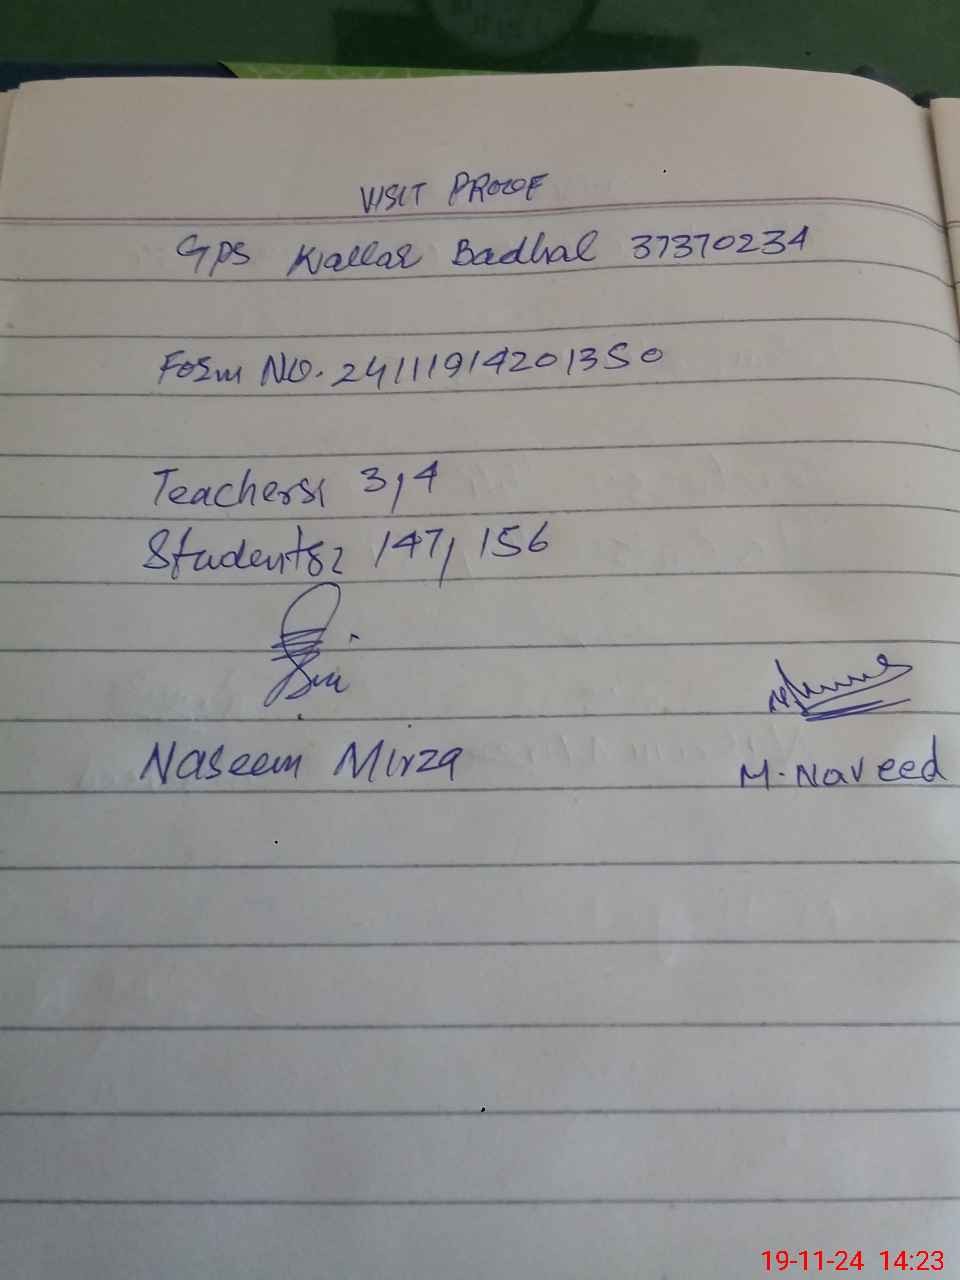 VISIT PROOF
GPS Kallar Badhal 37370234
Form NO. 24111914201350
Teachers: 3,4
Students: 147, 156
Naseem Mirza
M. Naveed
19-11-24 14:23